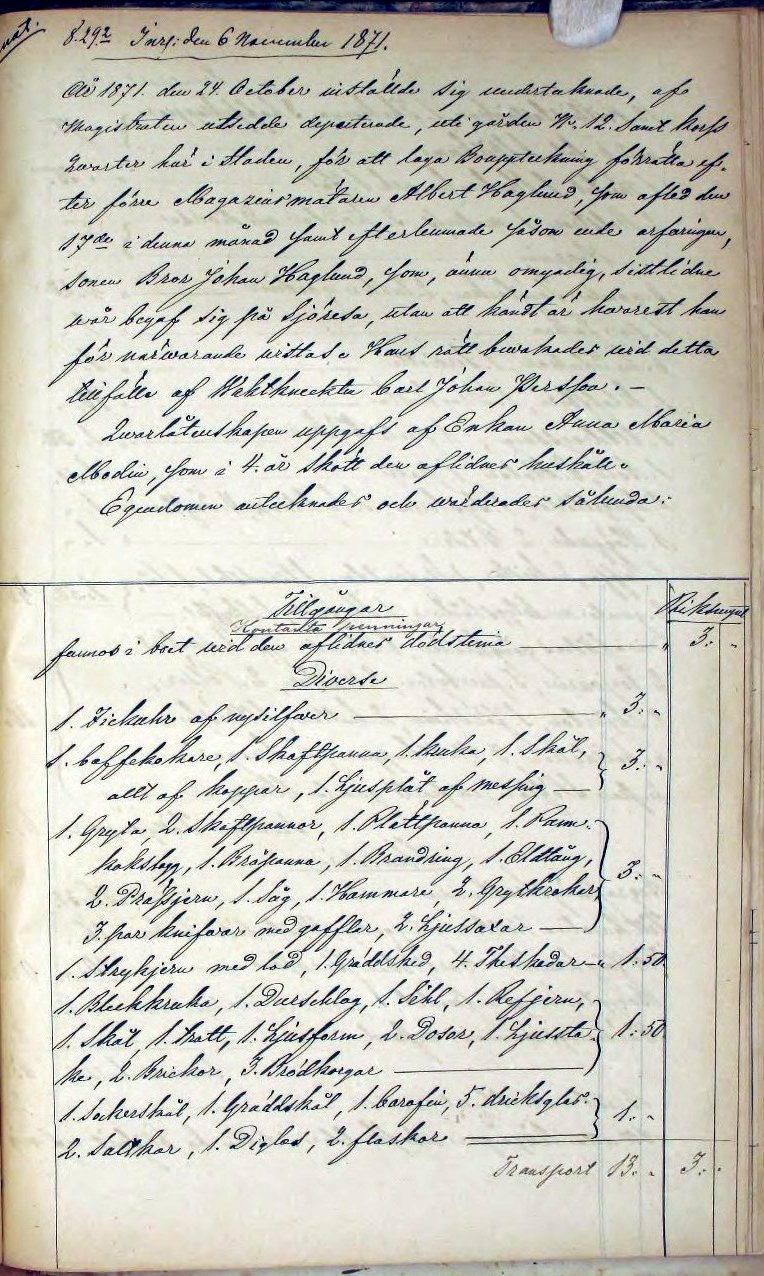 §.292 Inrg: den 6 November 1871.
År 1871. den 24. October instälde sig undertecknade, af
Magistraten utsedde deputerade, uti gården No. 12. Samt Korss
Qvarter här i Staden, för att laga Bouppteckning förrätta ef-
ter förre Magazinsmätaren Albert Haglund, som afled den
17de i denna månad samt efterlemnade såsom ende arfvingen,
sonen Bror Johan Haglund, som, ännu omyndig, sistlidne
vår begaf sig på Sjöresa, utan att kändt är hvarest han
för närwarande vistas. Hans rätt bewakades wid detta
tillfälle af Waktkneckten Carl Johan Persson. —
Qvarlåtenskapen uppgafs af Enkan Anna Maria
Modin, som i 4. år skött den aflidnes hushåll.
Egendomen antecknades och wärderades sålunda:
Tillgångar
Riksmynt
Kontanta penningar
funnos i boet wid den aflidnes dödstima — " 3: "
Diverse
1. Fickuhr af nysilfver — " 3: "
1. Caffekokare, 1. Skaftpanna, 1. kruka, 1. Skål,
allt af koppar, 1. Ljusplåt af messing — 3: "
1. Gryta 2. Skaftpannor, 1. Plättpanna, 1. Pann-
kakslagg, 1. Bröpanna, 1. Brandring, 1. Eldtång,
2. Prässjern, 1. Såg, 1. Hammare, 2. Grytkrokar, 3: "
3. par knifvar med gafflar, 2. Ljussaxar —
1. Strykjern med lod, 1. Gräddsked, 4. Theskedar " 1: 50.
1. Bleckkruka, 1. Durschlag, 1. Sihl, 1. Refjern,
1. Skål, 1. Tratt, 1. Ljusform, 2. Dosor, 1. Ljussta- 1: 50
ke, 2. Brickor, 3. Brödkorgar —
1. Sockerskål, 1. Gräddskål, 1. Carafin, 5. dricksglas- 1: "
2. Saltkar, 1. Diglas, 2. flaskor
Transport 13: " 3: "